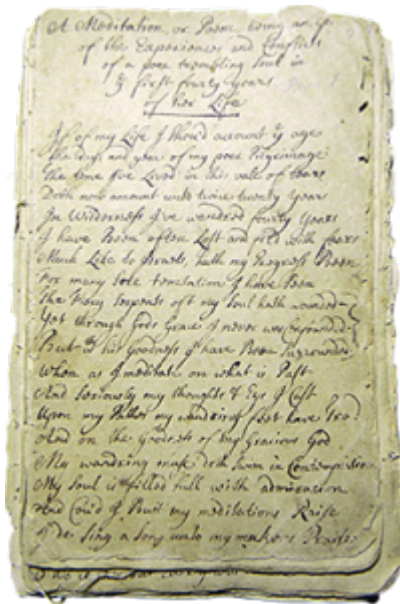 A Meditation, or Poem, being an Ep
of the Experiences and Conflicts
of a poor trembling Soul in
yͤ first fourty years
of her Life
If of my Life I should account yͤ age
The days and years of my poor Pilgrimage
The time I've Lived in this vale of tears
Doth now amount unto twice twenty years
In Wilderness I've wandred fourty years
I have Been often Lost and fill'd with fears
Much Like to Israels, hath my Progress Been
For many sore temtations I have seen
The Fiery Serpents oft my soul hath wounded
Yet through Gods Grace I never was
But wͭʰ his Goodness I have Been surrounded
Whom as I meditate on what is Past
And seriously my thoughts & Eye I Cast
Upon my Pathes my wandring feet have Trod
And on the Goodness of my Gracious God
My wandring muse doth Swim in
My Soul is filled full with admiration
And Cou'd I suit my meditations Raise
I'de Sing a Song unto my makers Praise